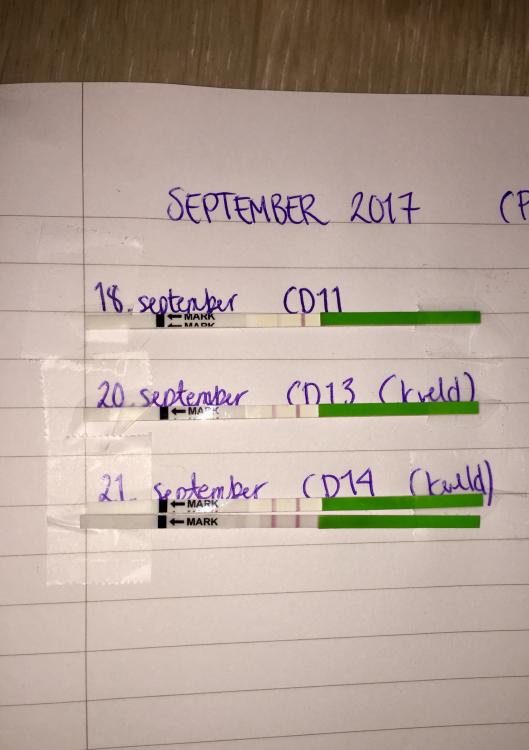 SEPTEMBER 2017 (P
18. september CD11
← MARK
← MARK
20. september CD13 (kveld)
← MARK
21. september CD14 (kveld)
← MARK
← MARK